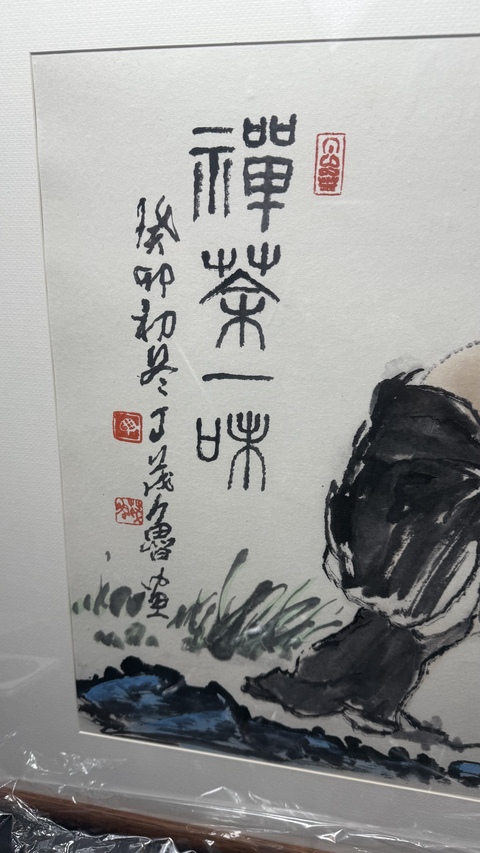 禪茶一味
癸卯初冬丁茂魯畫